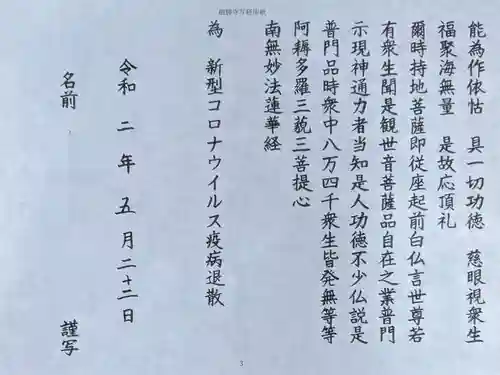 能為作依怙　具一切功徳　慈眼視衆生
福聚海無量　是故応頂礼
爾時持地菩薩即従座起前白仏言世尊若
有衆生聞是観世音菩薩品自在之業普門
示現神通力者当知是人功徳不少仏説是
普門品時衆中八万四千衆生皆発無等等
阿耨多羅三藐三菩提心
南無妙法蓮華経
為　新型コロナウイルス疫病退散
令和　二　年　五　月　二十二　日
名前　　　　　　　　謹写
3